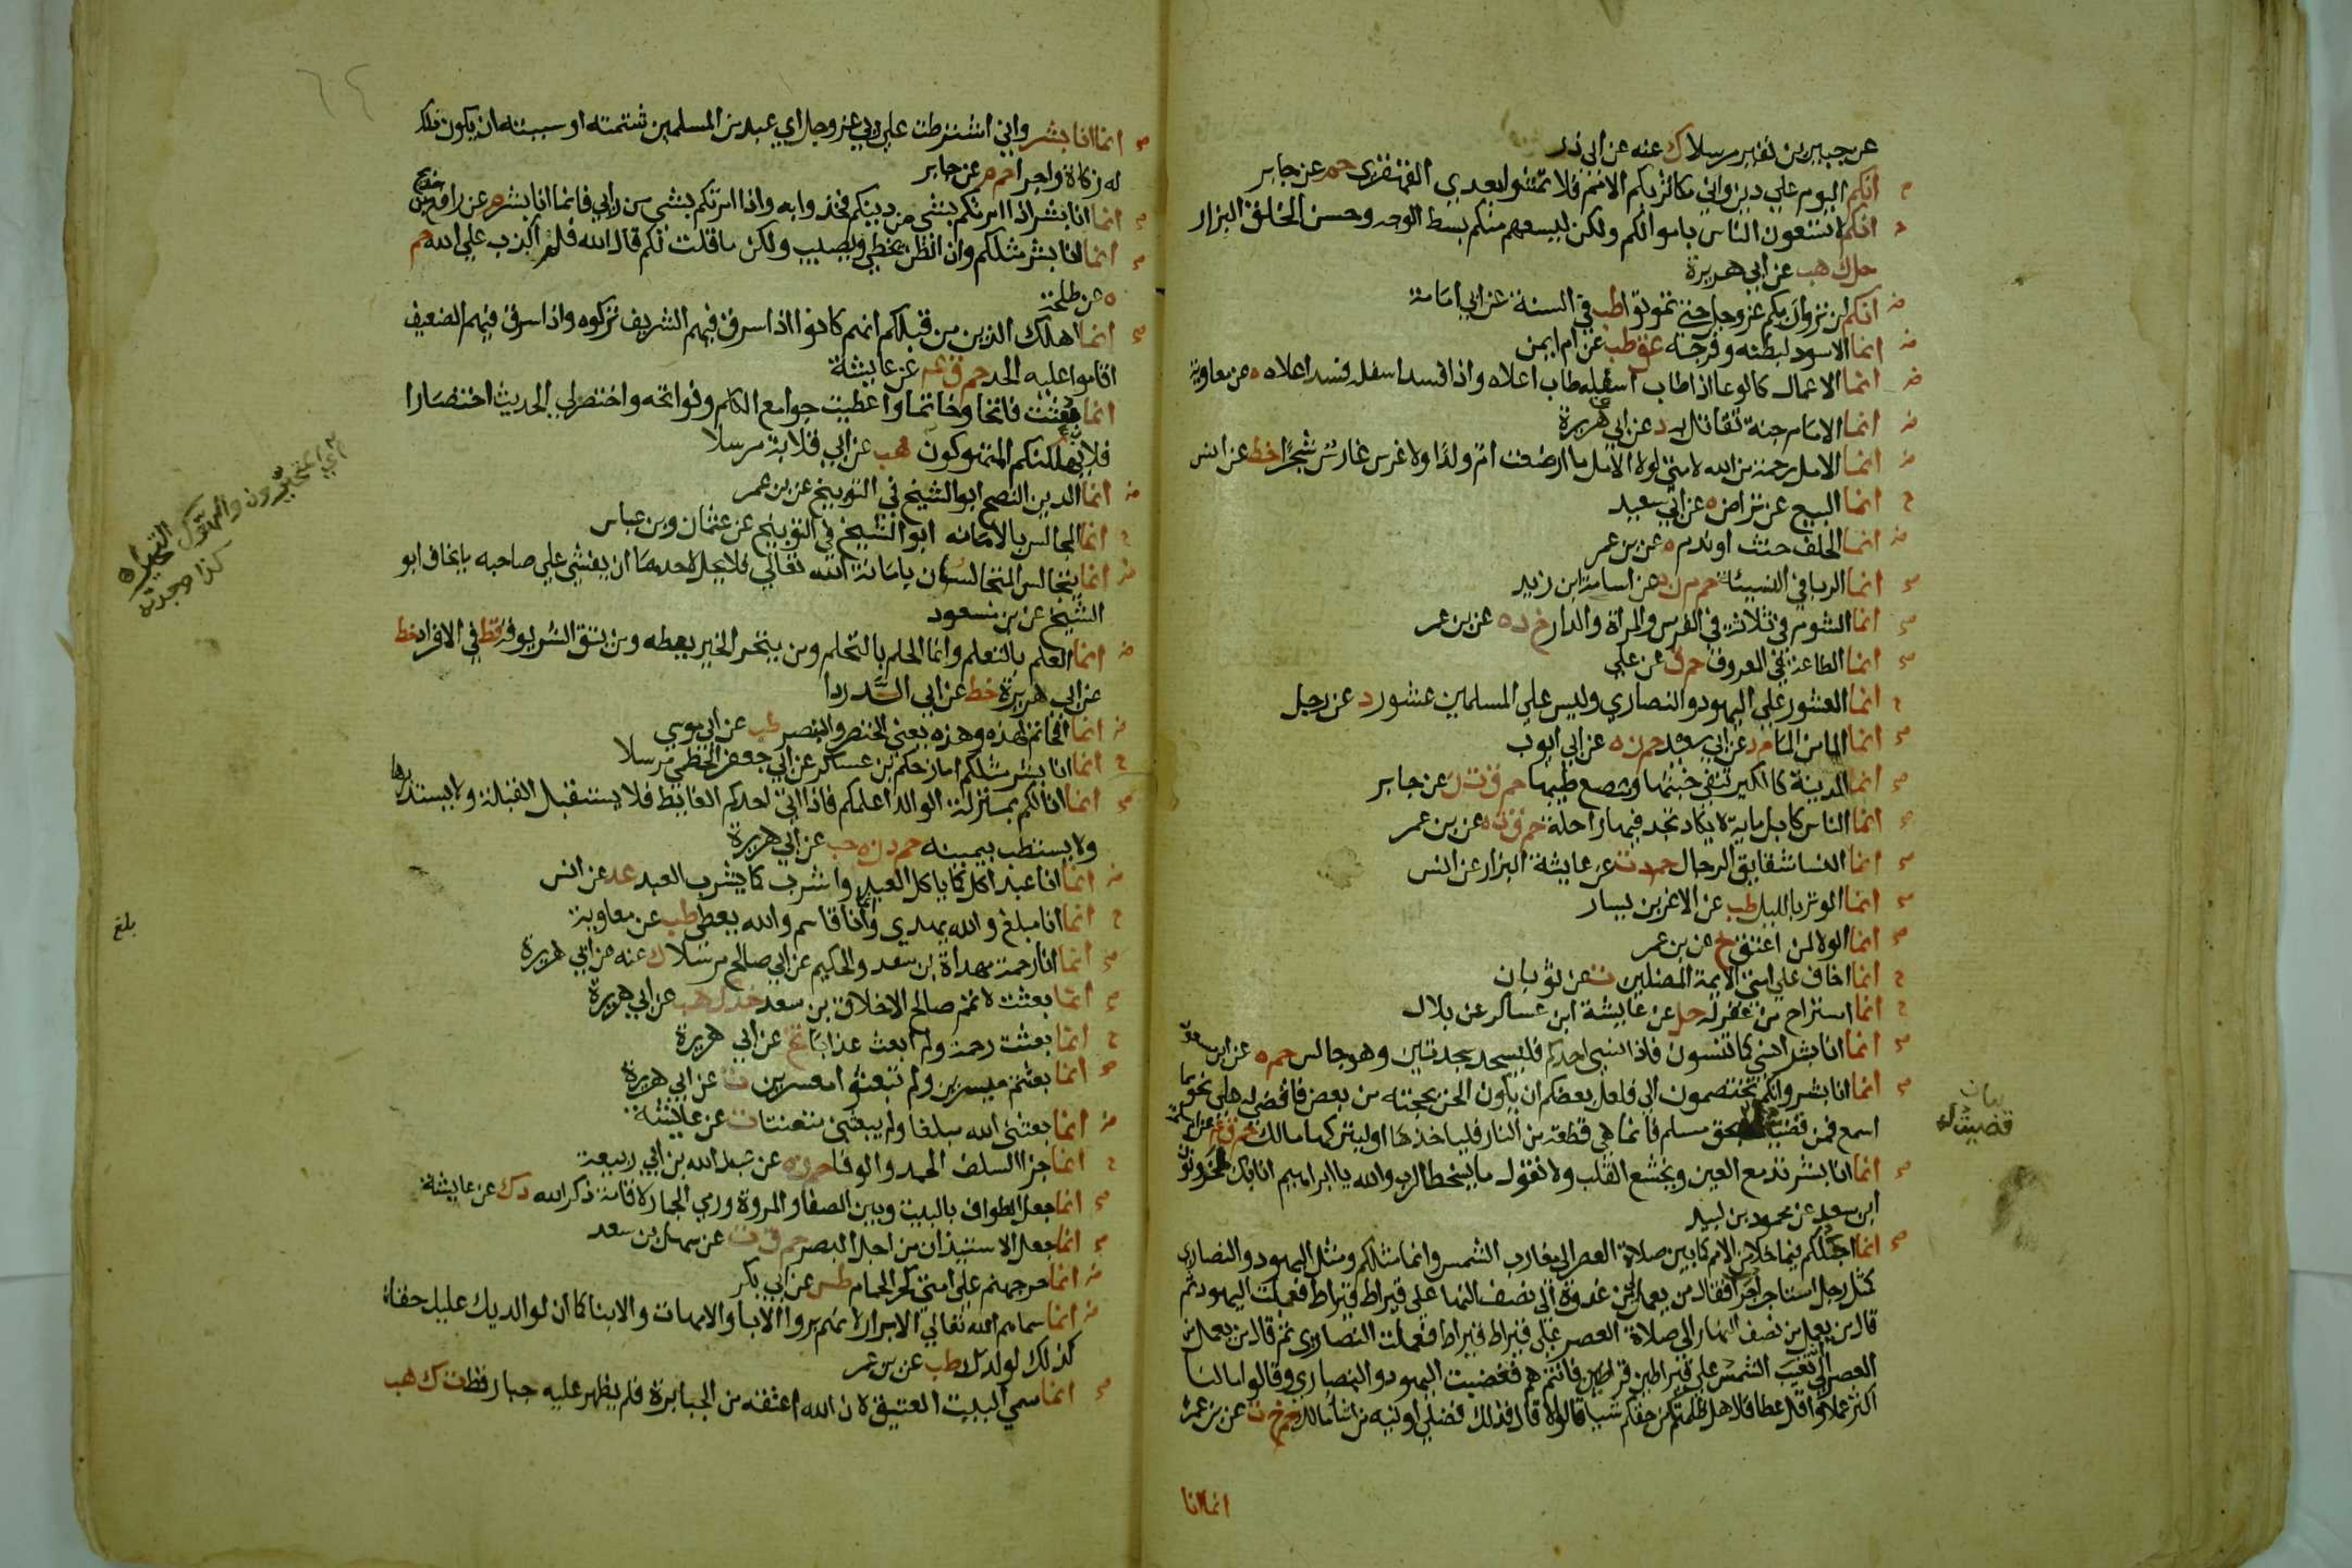 عن جبير بن نفير مرسلا ك عنه عن ابي ذر
انكم اليوم علي دين واني مكاثر بكم الامم فلا تمشوا بعدي القهقري حم عن جابر
انكم لا تسعون الناس باموالكم ولكن ليسعهم منكم بسط الوجه وحسن الخلق البزار
حل ك هب عن ابي هريرة
انكم لن تروا ربكم عز وجل حتي تموتوا طب في السنة عن ابي امامة
انما الاسود لبطنه وفرجه عق طب عن ام ايمن
انما الاعمال كالوعا اذا طاب اسفله طاب اعلاه واذا فسد اسفله فسد اعلاه ه عن معاوية
انما الامام جنة تقاتل به د عن ابي هريرة
انما الامل رحمة من الله لامتي لولا الامل ما ارضعت ام ولدا ولا غرس غارس شجرا خط عن انس
انما البيع عن تراض ه عن ابي سعيد
انما الحلف حنث او ندم ه عن بن عمر
انما الربا في النسيئة حم م ن ه عن اسامة ابن زيد
انما الشوم في ثلاثة في الفرس والمراة والدار خ د ه عن بن عمر
انما الطاعة في المعروف حم ق عن علي
انما العشور علي اليهود والنصاري وليس علي المسلمين عشور د عن رجل
انما الماء من الماء م د عن ابي سعيد حم ن ه عن ابي ايوب
انما المدينة كالكير تنفي خبثها وتنصع طيبها حم ق ت ن عن جابر
انما الناس كابل ماية لا يكاد تجد فيها راحلة حم ق ت ه عن بن عمر
انما النسا شقايق الرجال حم د ت عن عايشة البزار عن انس
انما الوتر بالليل طب عن الاغر بن يسار
انما الولا لمن اعتق خ عن بن عمر
انما اخاف علي امتي الايمة المضلين ت عن ثوبان
انما استراح من غفر له حل عن عايشة ابن عساكر عن بلال
انما انا بشر انسي كما تنسون فاذا نسي احدكم فليسجد سجدتين وهو جالس حم ه عن ابن مسعود
انما انا بشر وانكم تختصمون الي فلعل بعضكم ان يكون الحن بحجته من بعض فاقضي له علي نحو مما
اسمع فمن قضيت له بحق مسلم فانما هي قطعة من النار فلياخذها او ليتركها مالك حم ق عه عن ام سلمة
انما انا بشر تدمع العين ويخشع القلب ولا نقول ما يسخط الرب والله يا ابراهيم انا بك لمحزونون
ابن سعد عن محمود بن لبيد
انما اجلكم فيما خلا من الامم كما بين صلاة العصر الي مغارب الشمس وانما مثلكم ومثل اليهود والنصاري
كمثل رجل استاجر اجرا فقال من يعمل من غدوة الي نصف النهار علي قيراط قيراط فعملت اليهود ثم
قال من يعمل من نصف النهار الي صلاة العصر علي قيراط قيراط فعملت النصاري ثم قال من يعمل من
العصر الي تغيب الشمس علي قيراطين قراطين فانتم هم فغضبت اليهود والنصاري وقالوا ما لنا
اكثر عملا واقل عطا قال هل ظلمتكم من حقكم شيا قالوا لا قال فذلك فضلي اوتيه من اشا مالك حم خ ت عن بن عمر
انما انا
بيان
قضيت له
٦٤
انما انا بشر واني اشترطت علي ربي عز وجل اي عبد من المسلمين شتمته او سببته ان يكون ذلك
له زكاة واجرا حم م عن جابر
انما انا بشر اذا امرتكم بشي من دينكم فخذوا به واذا امرتكم بشي من رايي فانما انا بشر م عن رافع بن خديج
انما انا بشر مثلكم وان الظن يخطي ويصيب ولكن ما قلت لكم قال الله فلن اكذب علي الله حم
ه عن طلحة
انما اهلك الذين من قبلكم انهم كانوا اذا سرق فيهم الشريف تركوه واذا سرق فيهم الضعيف
اقاموا عليه الحد حم ق عه عن عايشة
انما بعثت فاتحا وخاتما واعطيت جوامع الكلم وفواتحه واختصر لي الحديث اختصارا
فلا يهلكنكم المتهوكون هب عن ابي قلابة مرسلا
انما الدين النصح ابو الشيخ في التوبيخ عن بن عمر
انما المجالس بالامانة ابو الشيخ في التوبيخ عن عثمان وبن عباس
انما يتجالس المتجالسان بامانة الله تعالي فلا يحل لاحدهما ان يفشي علي صاحبه ما يخاف ابو
الشيخ عن بن مسعود
انما العلم بالتعلم وانما الحلم بالتحلم ومن يتحر الخير يعطه ومن يتق الشر يوقه قط في الافراد خط
عن ابي هريرة خط عن ابي الدردا
انما الخاتم لهذه وهذه يعني الخنصر والبنصر طب عن ابي موسي
انما انا بشر مثلكم امازحكم بن عساكر عن ابي جعفر الخطمي مرسلا
انما انا لكم بمنزلة الوالد اعلمكم فاذا اتي احدكم الغايط فلا يستقبل القبلة ولا يستدبرها
ولا يستطب بيمينه حم د ن ه حب عن ابي هريرة
انما انا عبد اكل كما ياكل العبد واشرب كما يشرب العبد عد عن انس
انما انا مبلغ والله يهدي وانما انا قاسم والله يعطي طب عن معاوية
انما انا رحمة مهداة ابن سعد والحكيم عن ابي صالح مرسلا ك عنه عن ابي هريرة
انما بعثت لاتمم صالح الاخلاق بن سعد خد ك هب عن ابي هريرة
انما بعثت رحمة ولم ابعث عذابا تخ عن ابي هريرة
انما بعثتم ميسرين ولم تبعثوا معسرين ت عن ابي هريرة
انما بعثني الله مبلغا ولم يبعثني متعنتا ت عن عايشة
انما جزا السلف الحمد والوفا حم ن ه عن عبد الله بن ابي ربيعة
انما جعل الطواف بالبيت وبين الصفا والمروة ورمي الجمار لاقامة ذكر الله د ك عن عايشة
انما جعل الاستيذان من اجل البصر حم ق ت عن سهل بن سعد
انما حر جهنم علي امتي كحر الحمام طس عن ابي بكر
انما سماهم الله تعالي الابرار لانهم بروا الابا والامهات والابنا كما ان لوالديك عليك حقا
كذلك لولدك طب عن بن عمر
انما سمي البيت العتيق لان الله اعتقه من الجبابرة فلم يظهر عليه جبار قط ت ك هب
اي المتحيرون والتهوك
التحير
كذا وجدته
بلغ